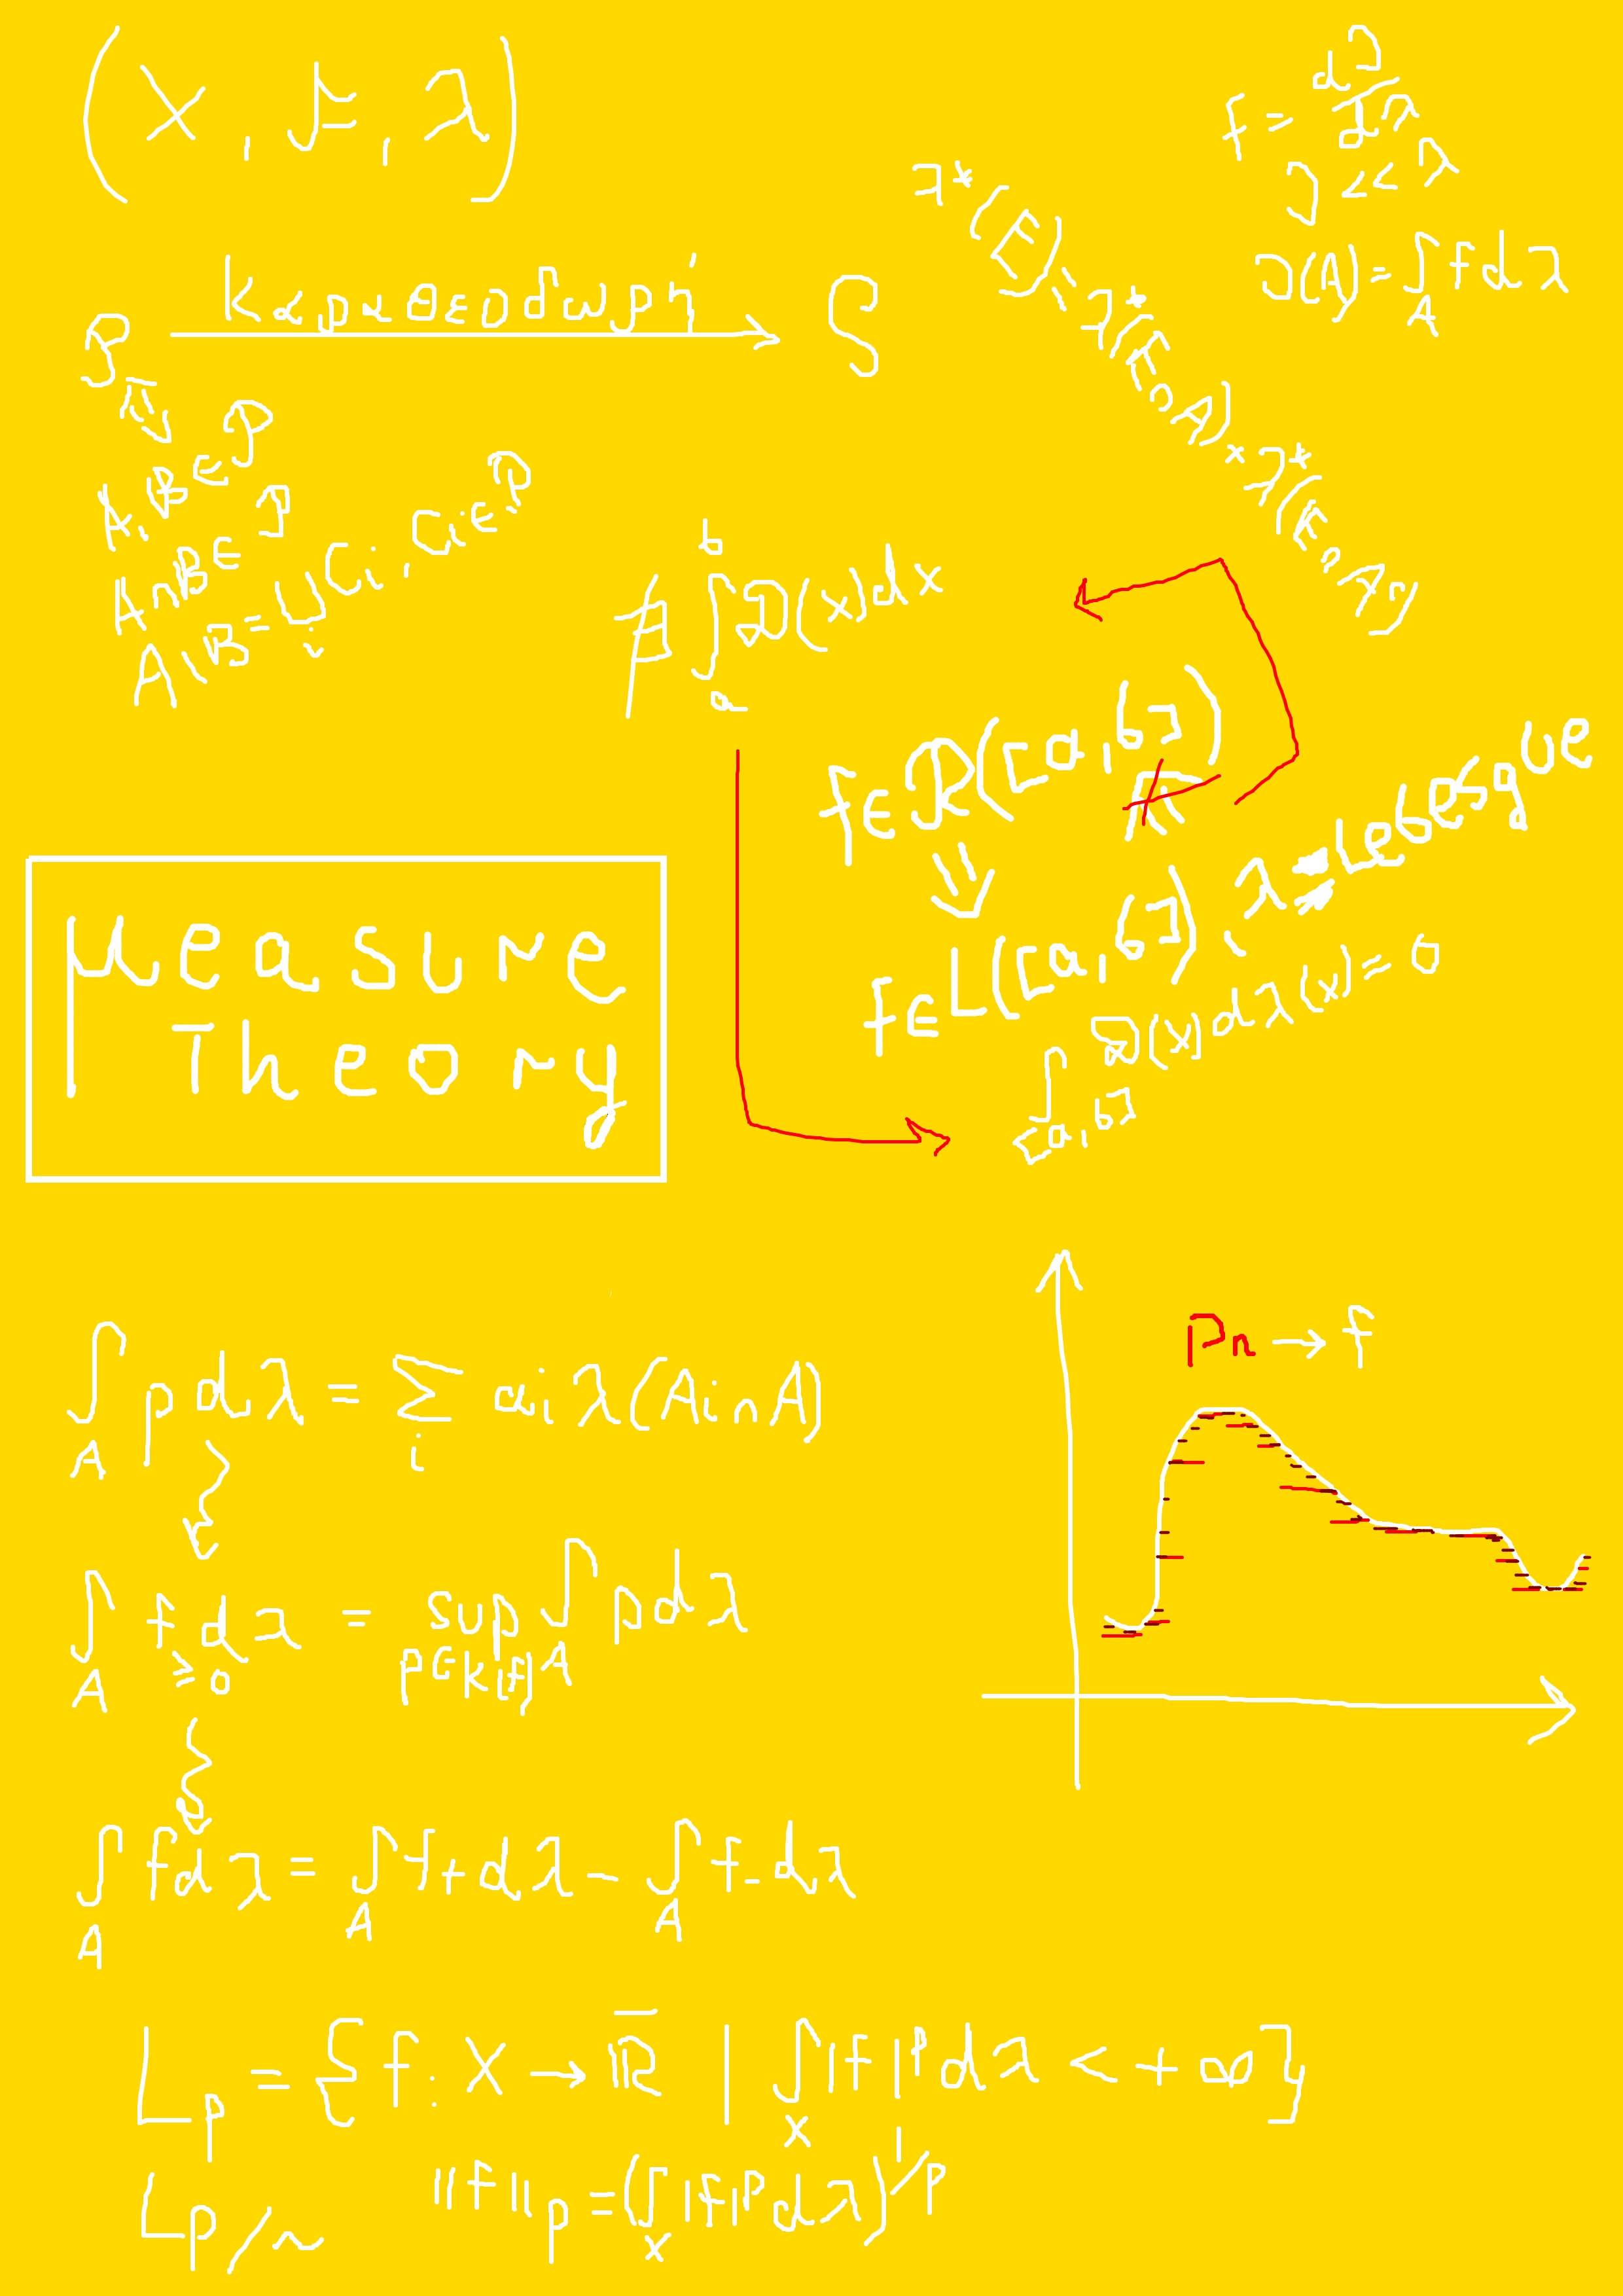 (X, μ, λ)
f = dν/dλ
ν << λ
ν(A) = ∫_A f dλ
λ*(E) = λ*(E∩A) + λ*(E∩Ā)
Καραθεοδωρή
S → S
A, B ∈ P
A∩B ∈ P
A\B = ∪_i C_i, C_i ∈ P
∄ ∫_a^b D(x)dx
f ∈ R([a,b])
f ∈ L([a,b]), λ = Lebesgue
∫_[a,b] D(x) dλ(x) = 0
Measure
Theory
Pn → f
∫_A p dλ = Σ_i a_i λ(A_i∩A)
∫_A f dλ = sup ∫_A p dλ
≥0 p∈K(f)
∫_A f dλ = ∫_A f+ dλ - ∫_A f- dλ
L_p = {f: X → ℝ̅ | ∫_X |f|^p dλ < +∞}
L_p/~ ||f||_p = (∫_X |f|^p dλ)^1/p